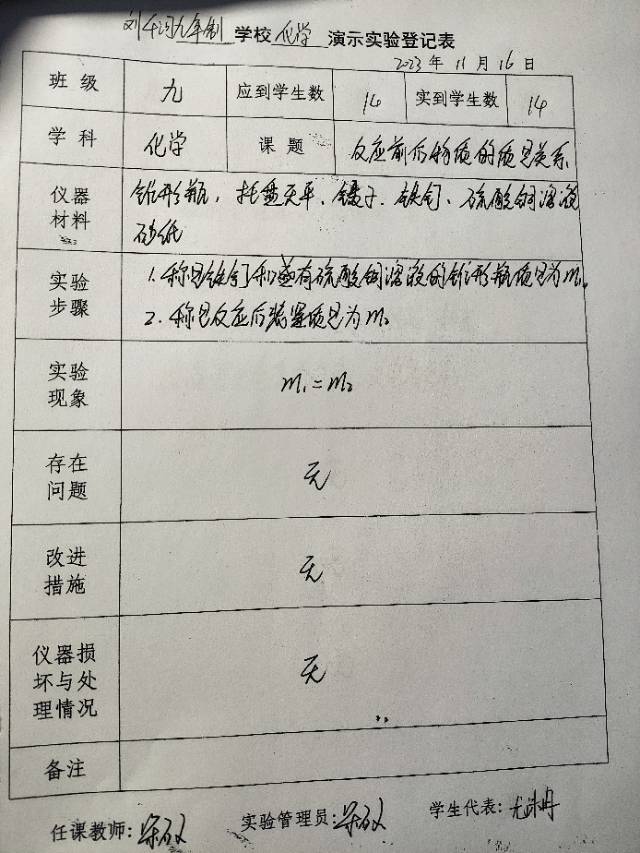 九年制 学校 化学 演示实验登记表
2023 年 11 月 16 日
班 级 九 应到学生数 14 实到学生数 14
学 科 化学 课 题 反应前后物质的质量关系
仪器 材料
锥形瓶、托盘天平、镊子、铁钉、硫酸铜溶液
砂纸
实验 步骤
1. 称量铁钉和盛有硫酸铜溶液的锥形瓶质量为m₁
2. 称量反应后装置质量为m₂
实验 现象
m₁=m₂
存在 问题
无
改进 措施
无
仪器损 坏与处 理情况
无
备注
任课教师: 实验管理员: 学生代表: